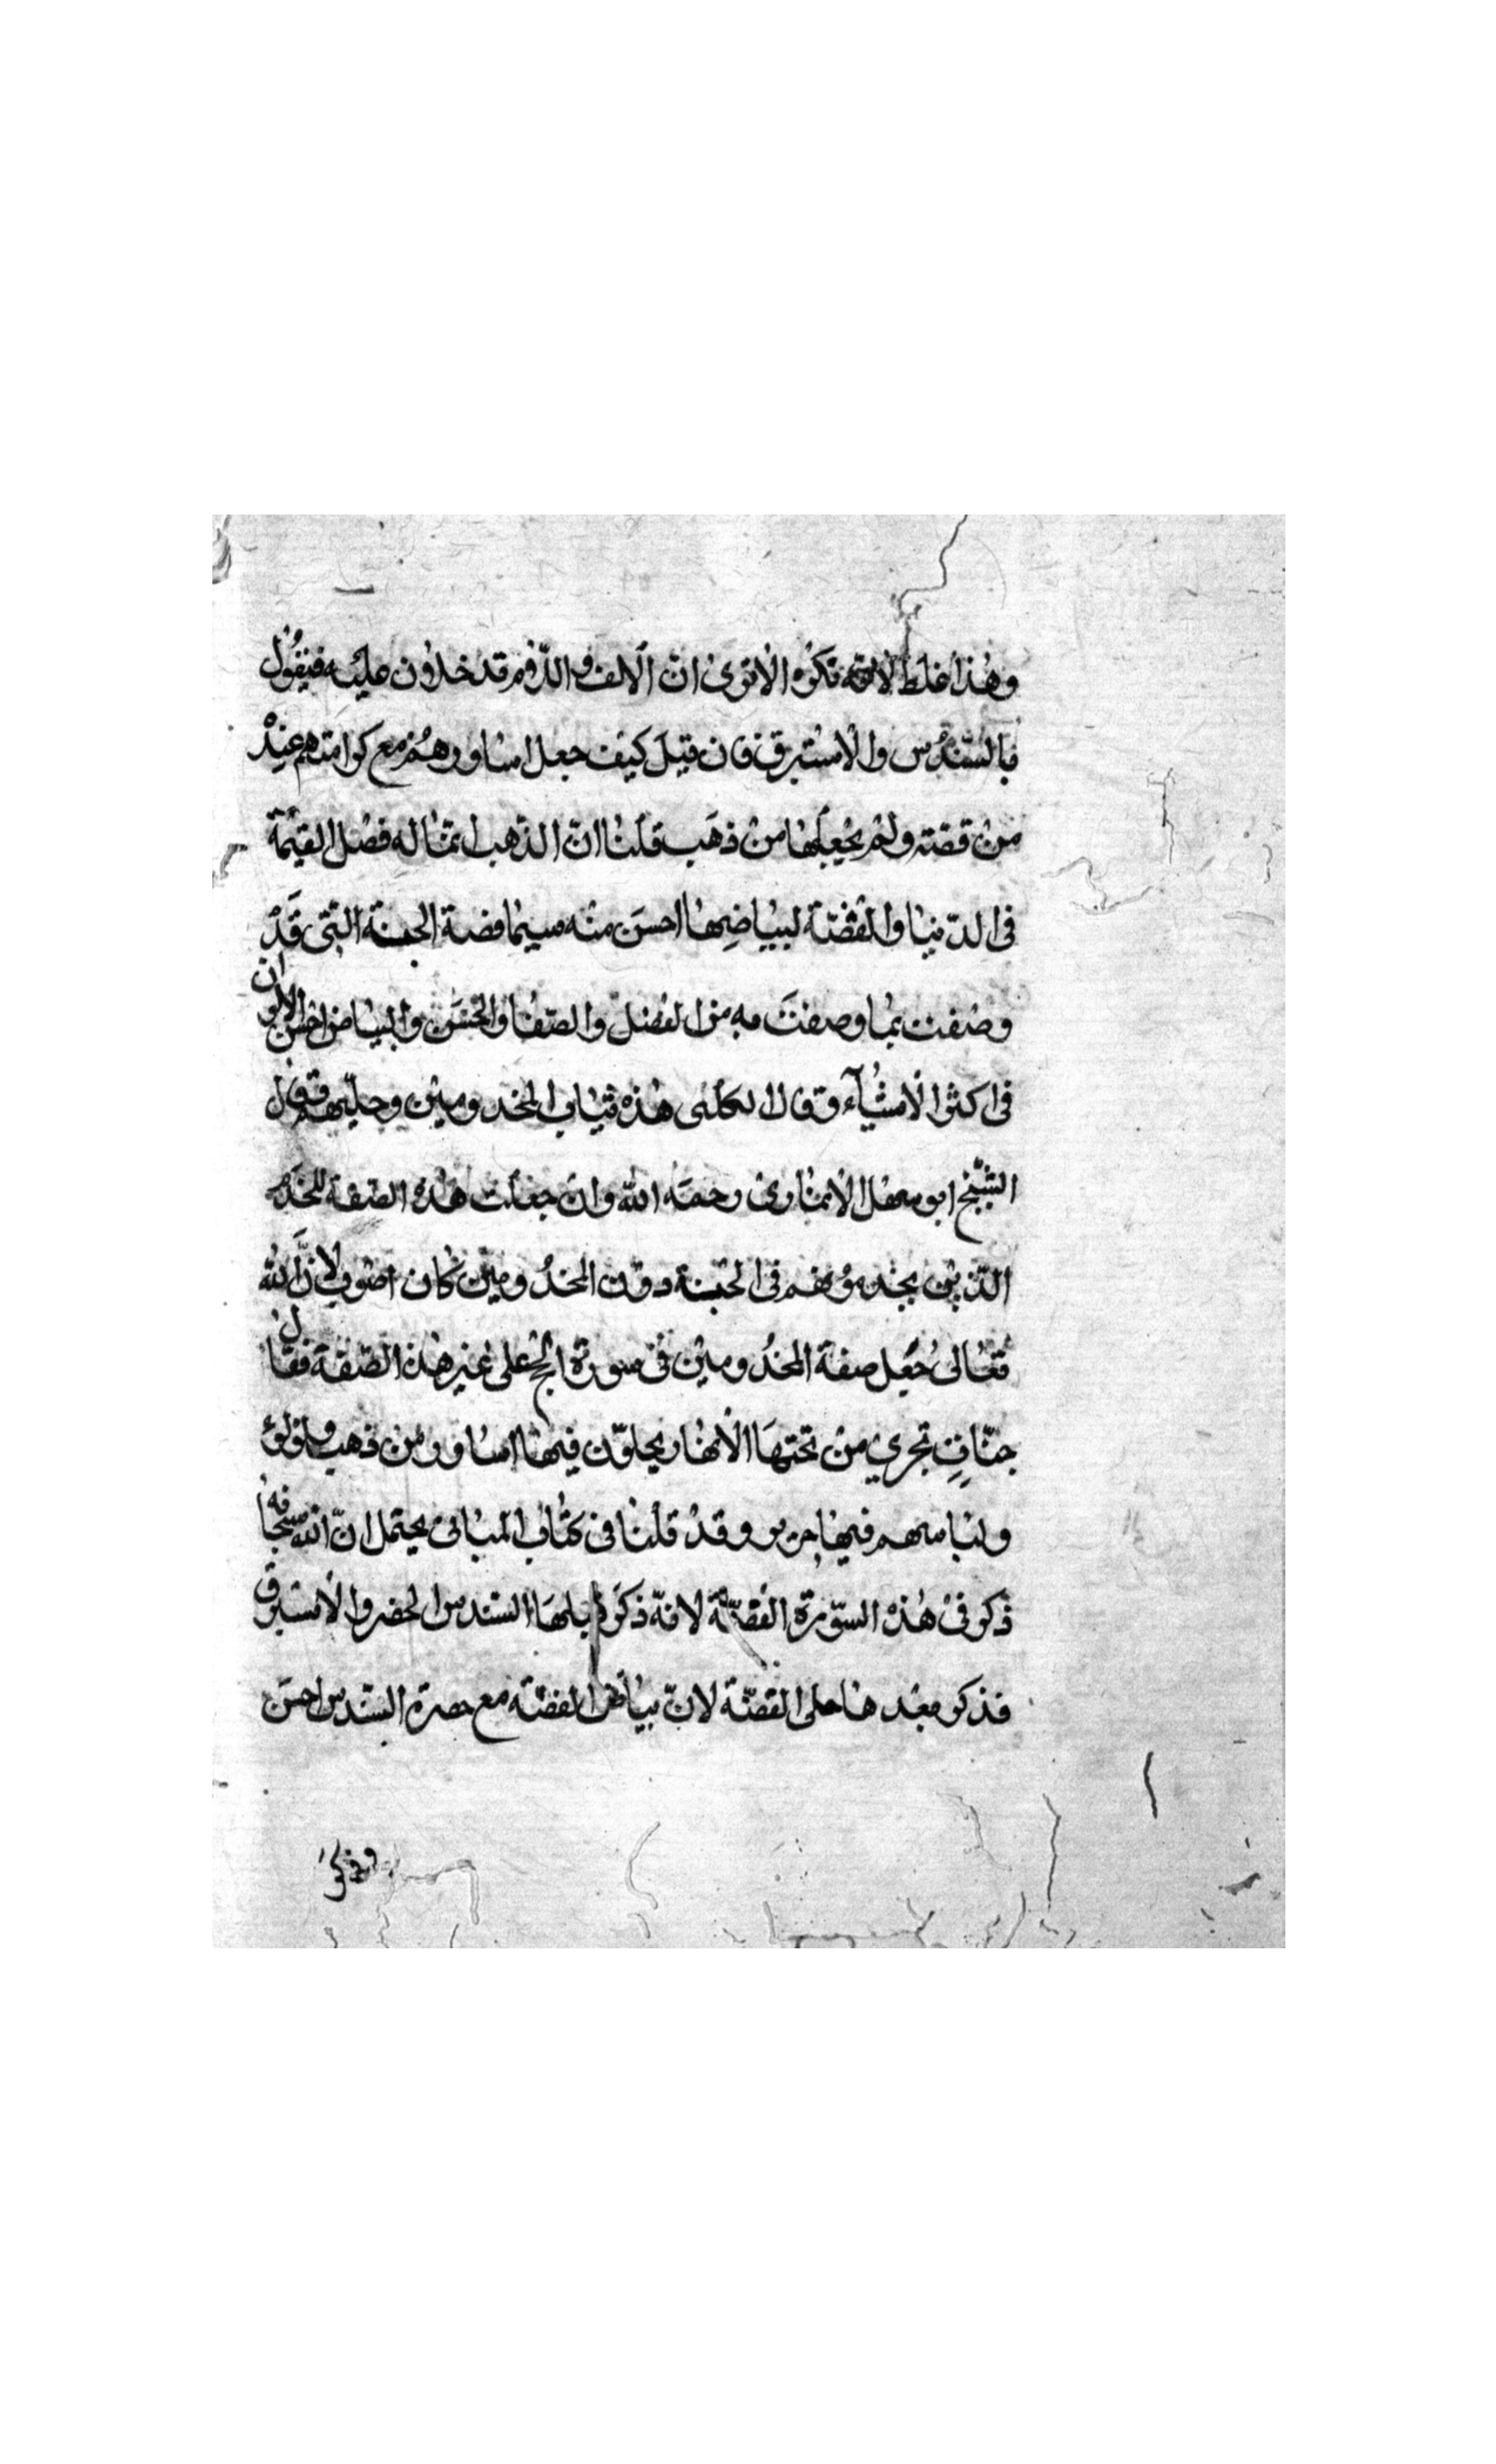 وهذا غلط لانه نكره الا ترى ان الالف واللام قد خلان عليه فيقول
فالسندس والاستبرق فان قيل كيف جعل اساورهم مع كرامتهم عند
من فضة ولم يجعلها من ذهب قلنا ان الذهب انما له فضل القيمة
فى الدنيا والفضة لبياضها احسن منه سيما فضة الجنة التى قد
وصفت بما وصفت به من الفضل والصفا والحسن والبياض احسن الالوان
فى اكثر الاشياء وقال الكلبى هذه ثياب المخدومين وحليهم قال
الشيخ ابو سهل الانمارى رحمه الله وان جعلت هذه الصفة للخدم
الذين يخدمونهم فى الجنة دون المخدومين كان اصوب لان الله
تعالى جعل صفة المخدومين فى سورة الحج على غير هذه الصفة فقال
جنات تجري من تحتها الانهار يحلون فيها اساور من ذهب ولؤلؤ
ولباسهم فيها حرير وقد قلنا فى كتاب المبانى يحتمل ان الله سبحانه
ذكر فى هذه السورة الفضة لانه ذكر قبلها السندس الخضر والاستبرق
فذكر بعدها حلى الفضة لان بياض الفضة مع خضرة السندس احسن
وذكر